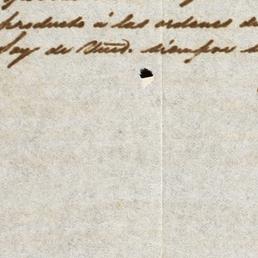 producto á las ordenes de
Soy de Vmd. siempre s